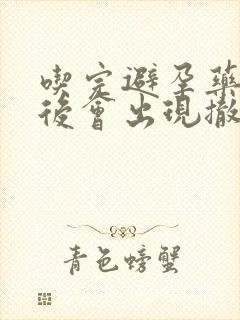 喫完避孕藥
後會出現撤
青色螃蟹